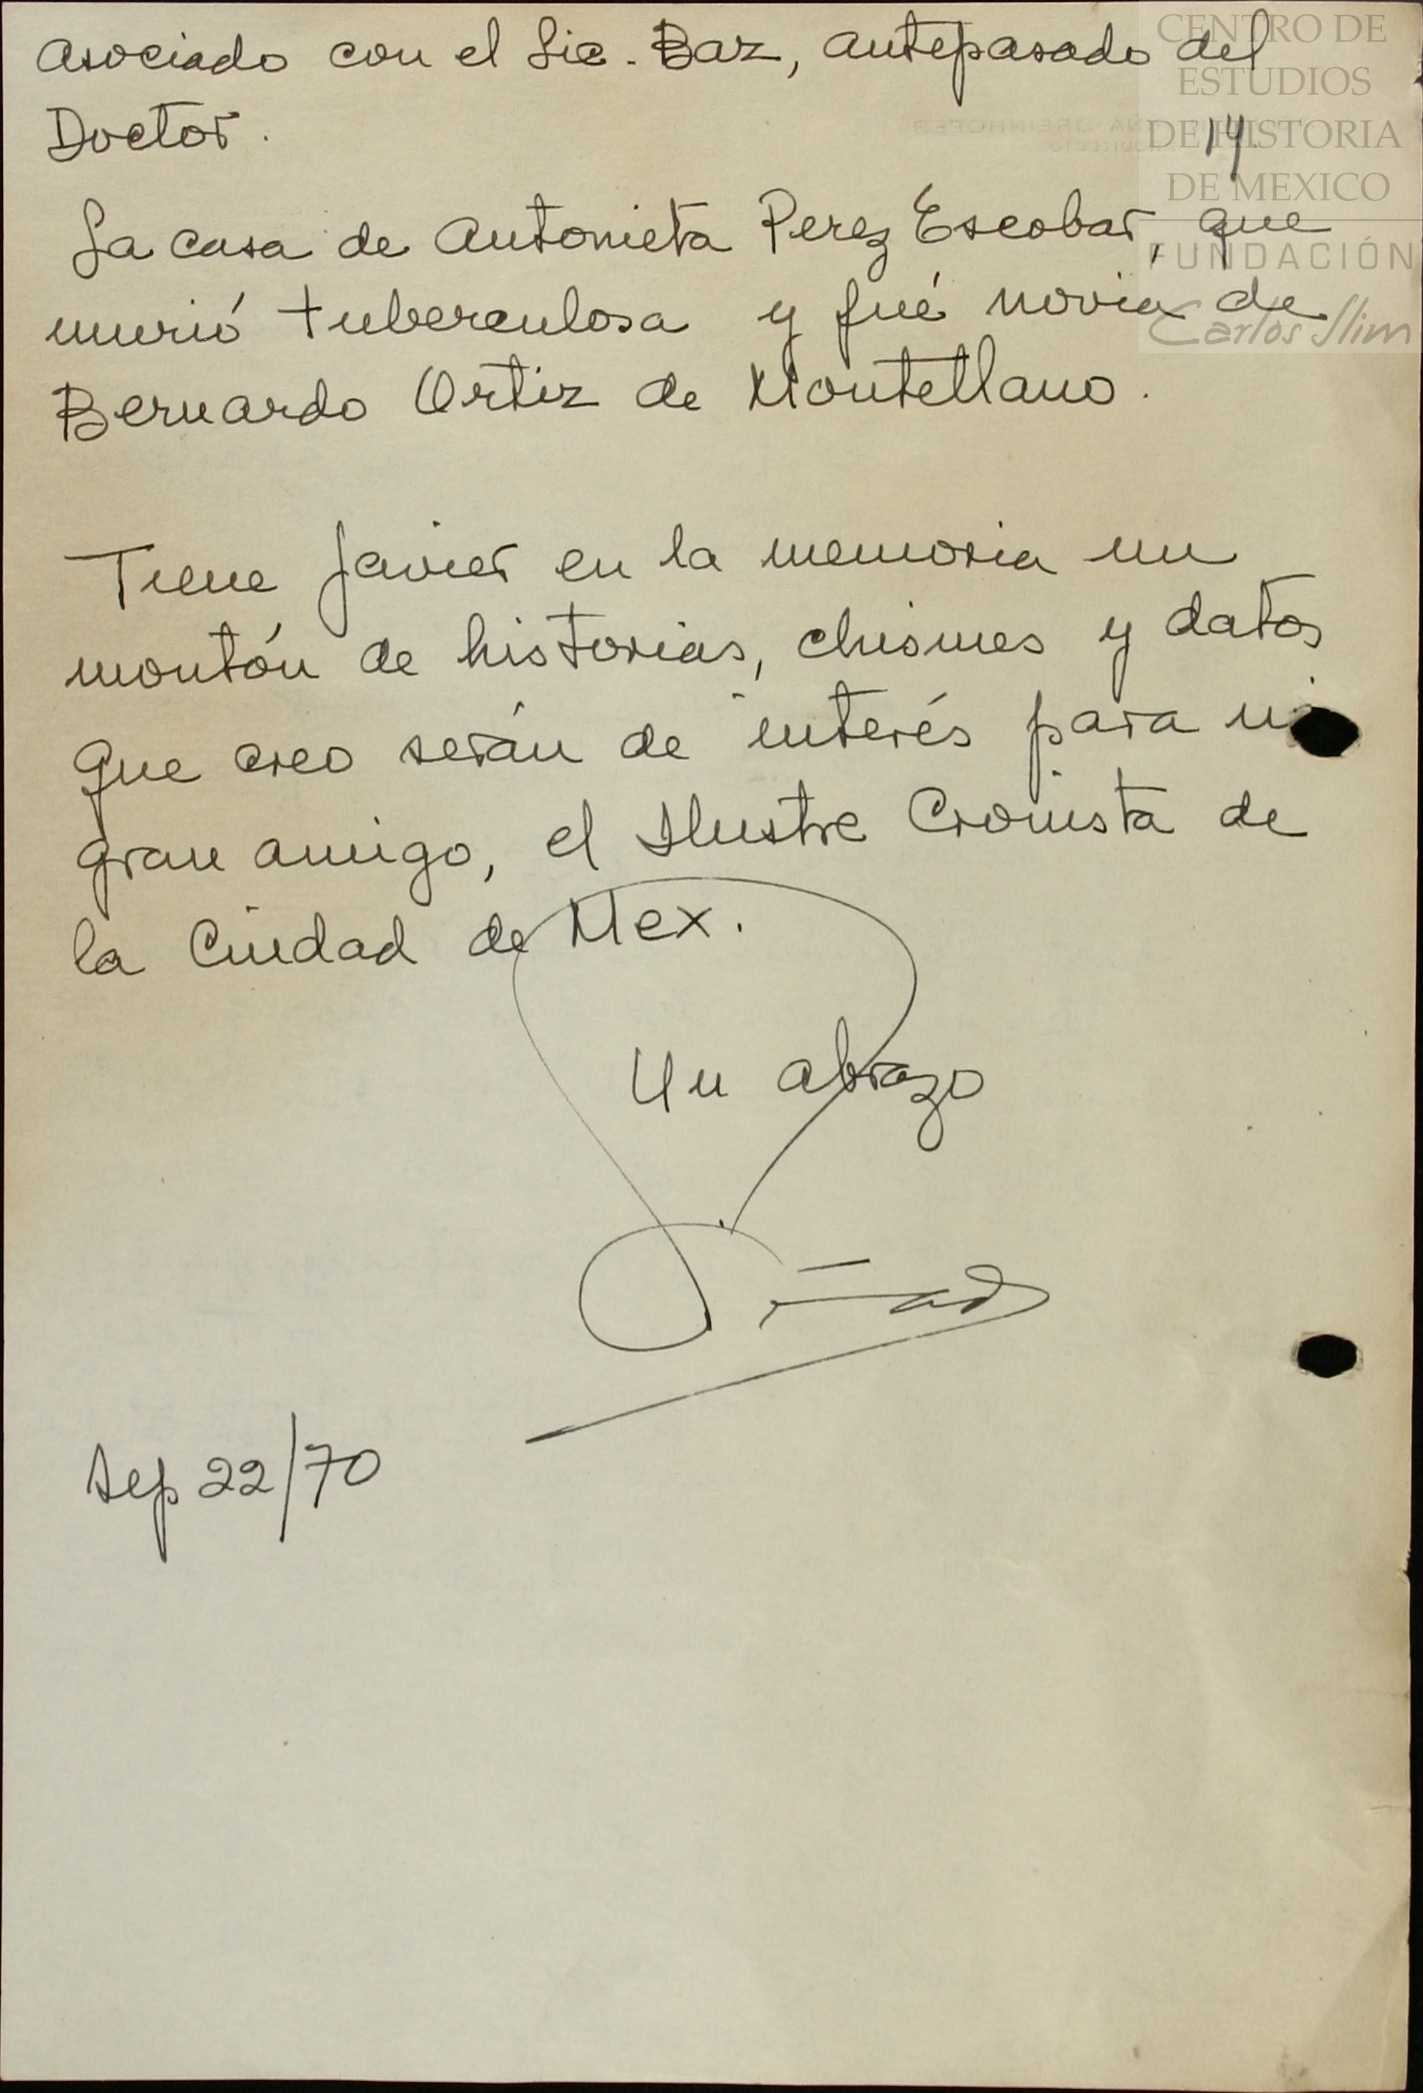 asociado con el Lic. Baz, antepasado del
Doctor.
CENTRO DE
ESTUDIOS
DE HISTORIA
DE MEXICO
FUNDACIÓN
Carlos Slim
14.
La casa de Antonieta Perez Escobar, que
murió tuberculosa y fué novia de
Bernardo Ortiz de Montellano.
Tiene Javier en la memoria un
montón de historias, chismes y datos
que creo serán de interés para mi
gran amigo, el Ilustre Cronista de
la Ciudad de Mex.
Un abrazo
Sep 22/70